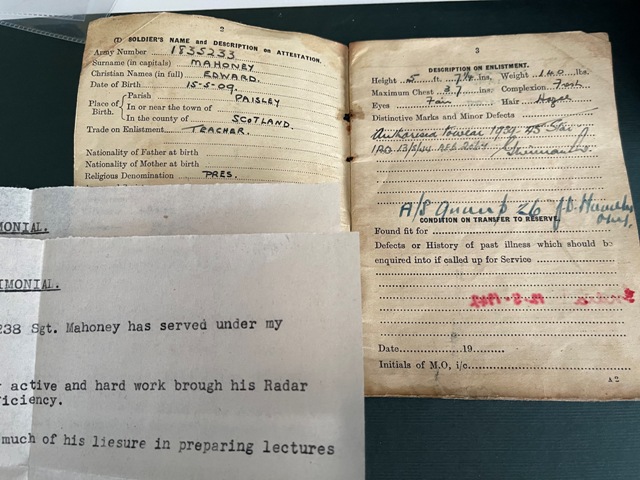 2
(1) SOLDIER'S NAME and DESCRIPTION on ATTESTATION.
Army Number 1835233
Surname (in capitals) MAHONEY
Christian Names (in full) EDWARD.
Date of Birth 15-5-09.
Place of Birth.
Parish PAISLEY
In or near the town of
In the county of SCOTLAND.
Trade on Enlistment TEACHER.
Nationality of Father at birth
Nationality of Mother at birth
Religious Denomination PRES.
3
DESCRIPTION ON ENLISTMENT.
Height 5 ft. 7¼ ins. Weight 140 lbs.
Maximum Chest 37 ins. Complexion Fresh
Eyes Fair Hair Hazel
Distinctive Marks and Minor Defects
1939-45 Star
A/S Group 26
CONDITION ON TRANSFER TO RESERVE.
Found fit for
Defects or History of past illness which should be
enquired into if called up for Service
Date 19
Initials of M.O, i/c
A 2
MONIAL.
IMONIAL.
238 Sgt. Mahoney has served under my
active and hard work brough his Radar
iciency.
much of his liesure in preparing lectures